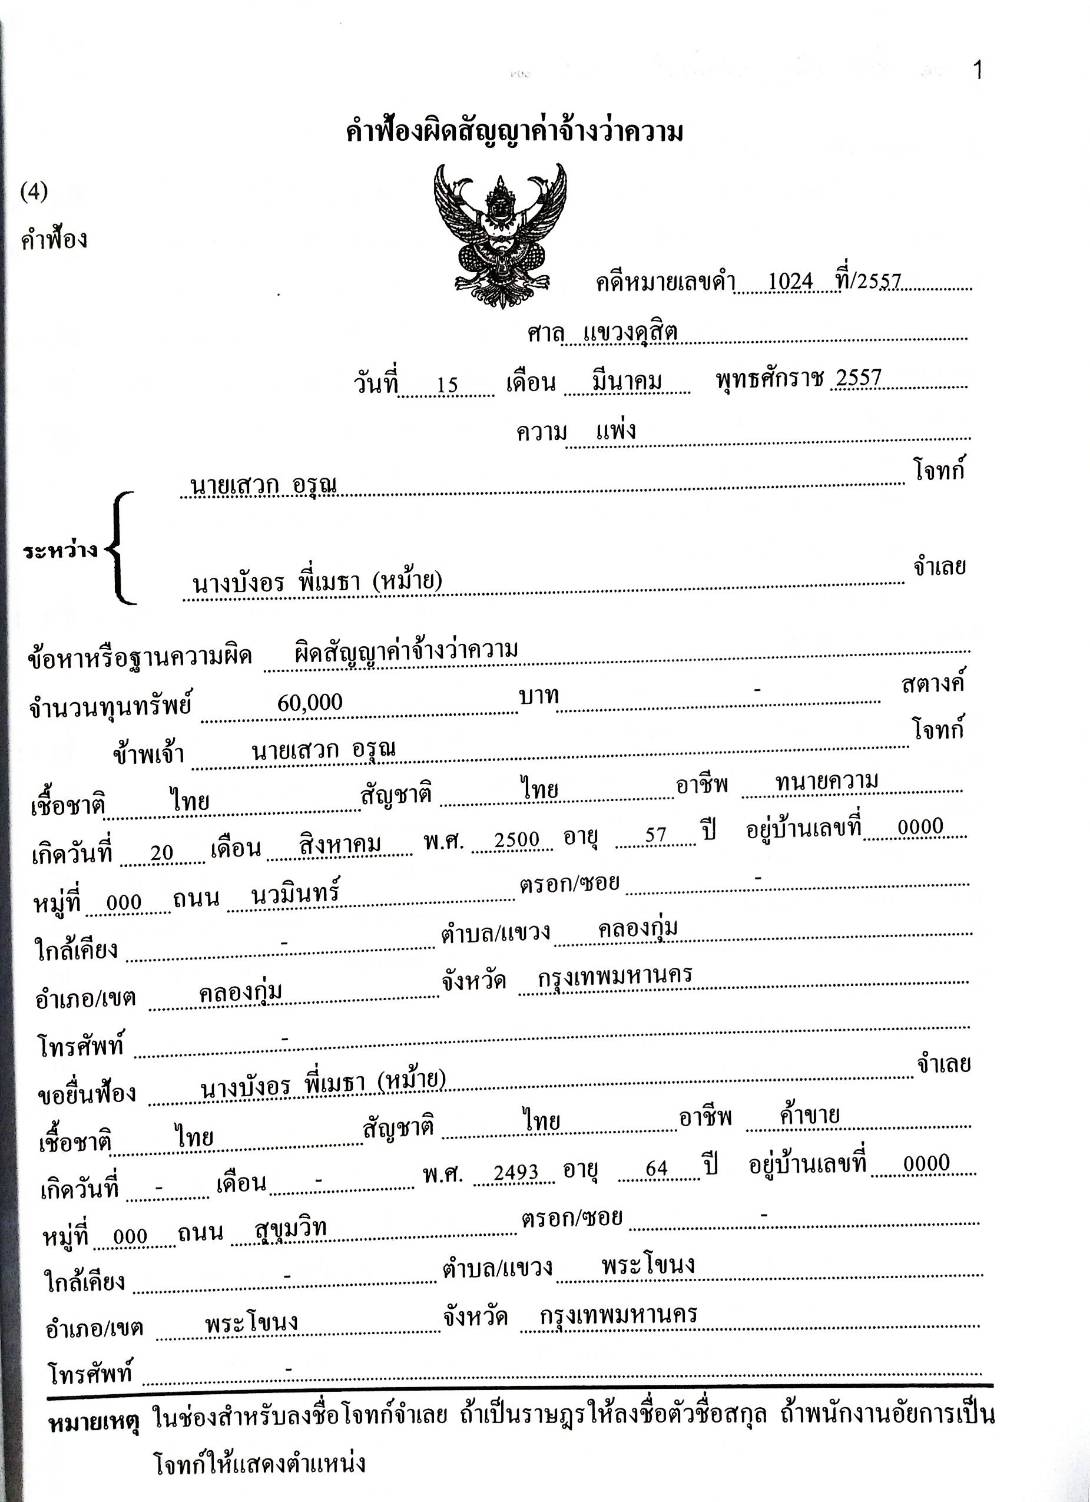 1
คำฟ้องผิดสัญญาค่าจ้างว่าความ
(4)
คำฟ้อง
คดีหมายเลขดำ 1024 ที่/2557
ศาล แขวงดุสิต
วันที่ 15 เดือน มีนาคม พุทธศักราช 2557
ความ แพ่ง
นายเสวก อรุณ โจทก์
ระหว่าง
นางบังอร พี่เมธา (หม้าย) จำเลย
ข้อหาหรือฐานความผิด ผิดสัญญาค่าจ้างว่าความ
จำนวนทุนทรัพย์ 60,000 บาท - สตางค์
ข้าพเจ้า นายเสวก อรุณ โจทก์
เชื้อชาติ ไทย สัญชาติ ไทย อาชีพ ทนายความ
เกิดวันที่ 20 เดือน สิงหาคม พ.ศ. 2500 อายุ 57 ปี อยู่บ้านเลขที่ 0000
หมู่ที่ 000 ถนน นวมินทร์ ตรอก/ซอย -
ใกล้เคียง - ตำบล/แขวง คลองกุ่ม
อำเภอ/เขต คลองกุ่ม จังหวัด กรุงเทพมหานคร
โทรศัพท์ -
ขอยื่นฟ้อง นางบังอร พี่เมธา (หม้าย) จำเลย
เชื้อชาติ ไทย สัญชาติ ไทย อาชีพ ค้าขาย
เกิดวันที่ - เดือน - พ.ศ. 2493 อายุ 64 ปี อยู่บ้านเลขที่ 0000
หมู่ที่ 000 ถนน สุขุมวิท ตรอก/ซอย -
ใกล้เคียง - ตำบล/แขวง พระโขนง
อำเภอ/เขต พระโขนง จังหวัด กรุงเทพมหานคร
โทรศัพท์ -
หมายเหตุ ในช่องสำหรับลงชื่อโจทก์จำเลย ถ้าเป็นราษฎรให้ลงชื่อตัวชื่อสกุล ถ้าพนักงานอัยการเป็น
โจทก์ให้แสดงตำแหน่ง